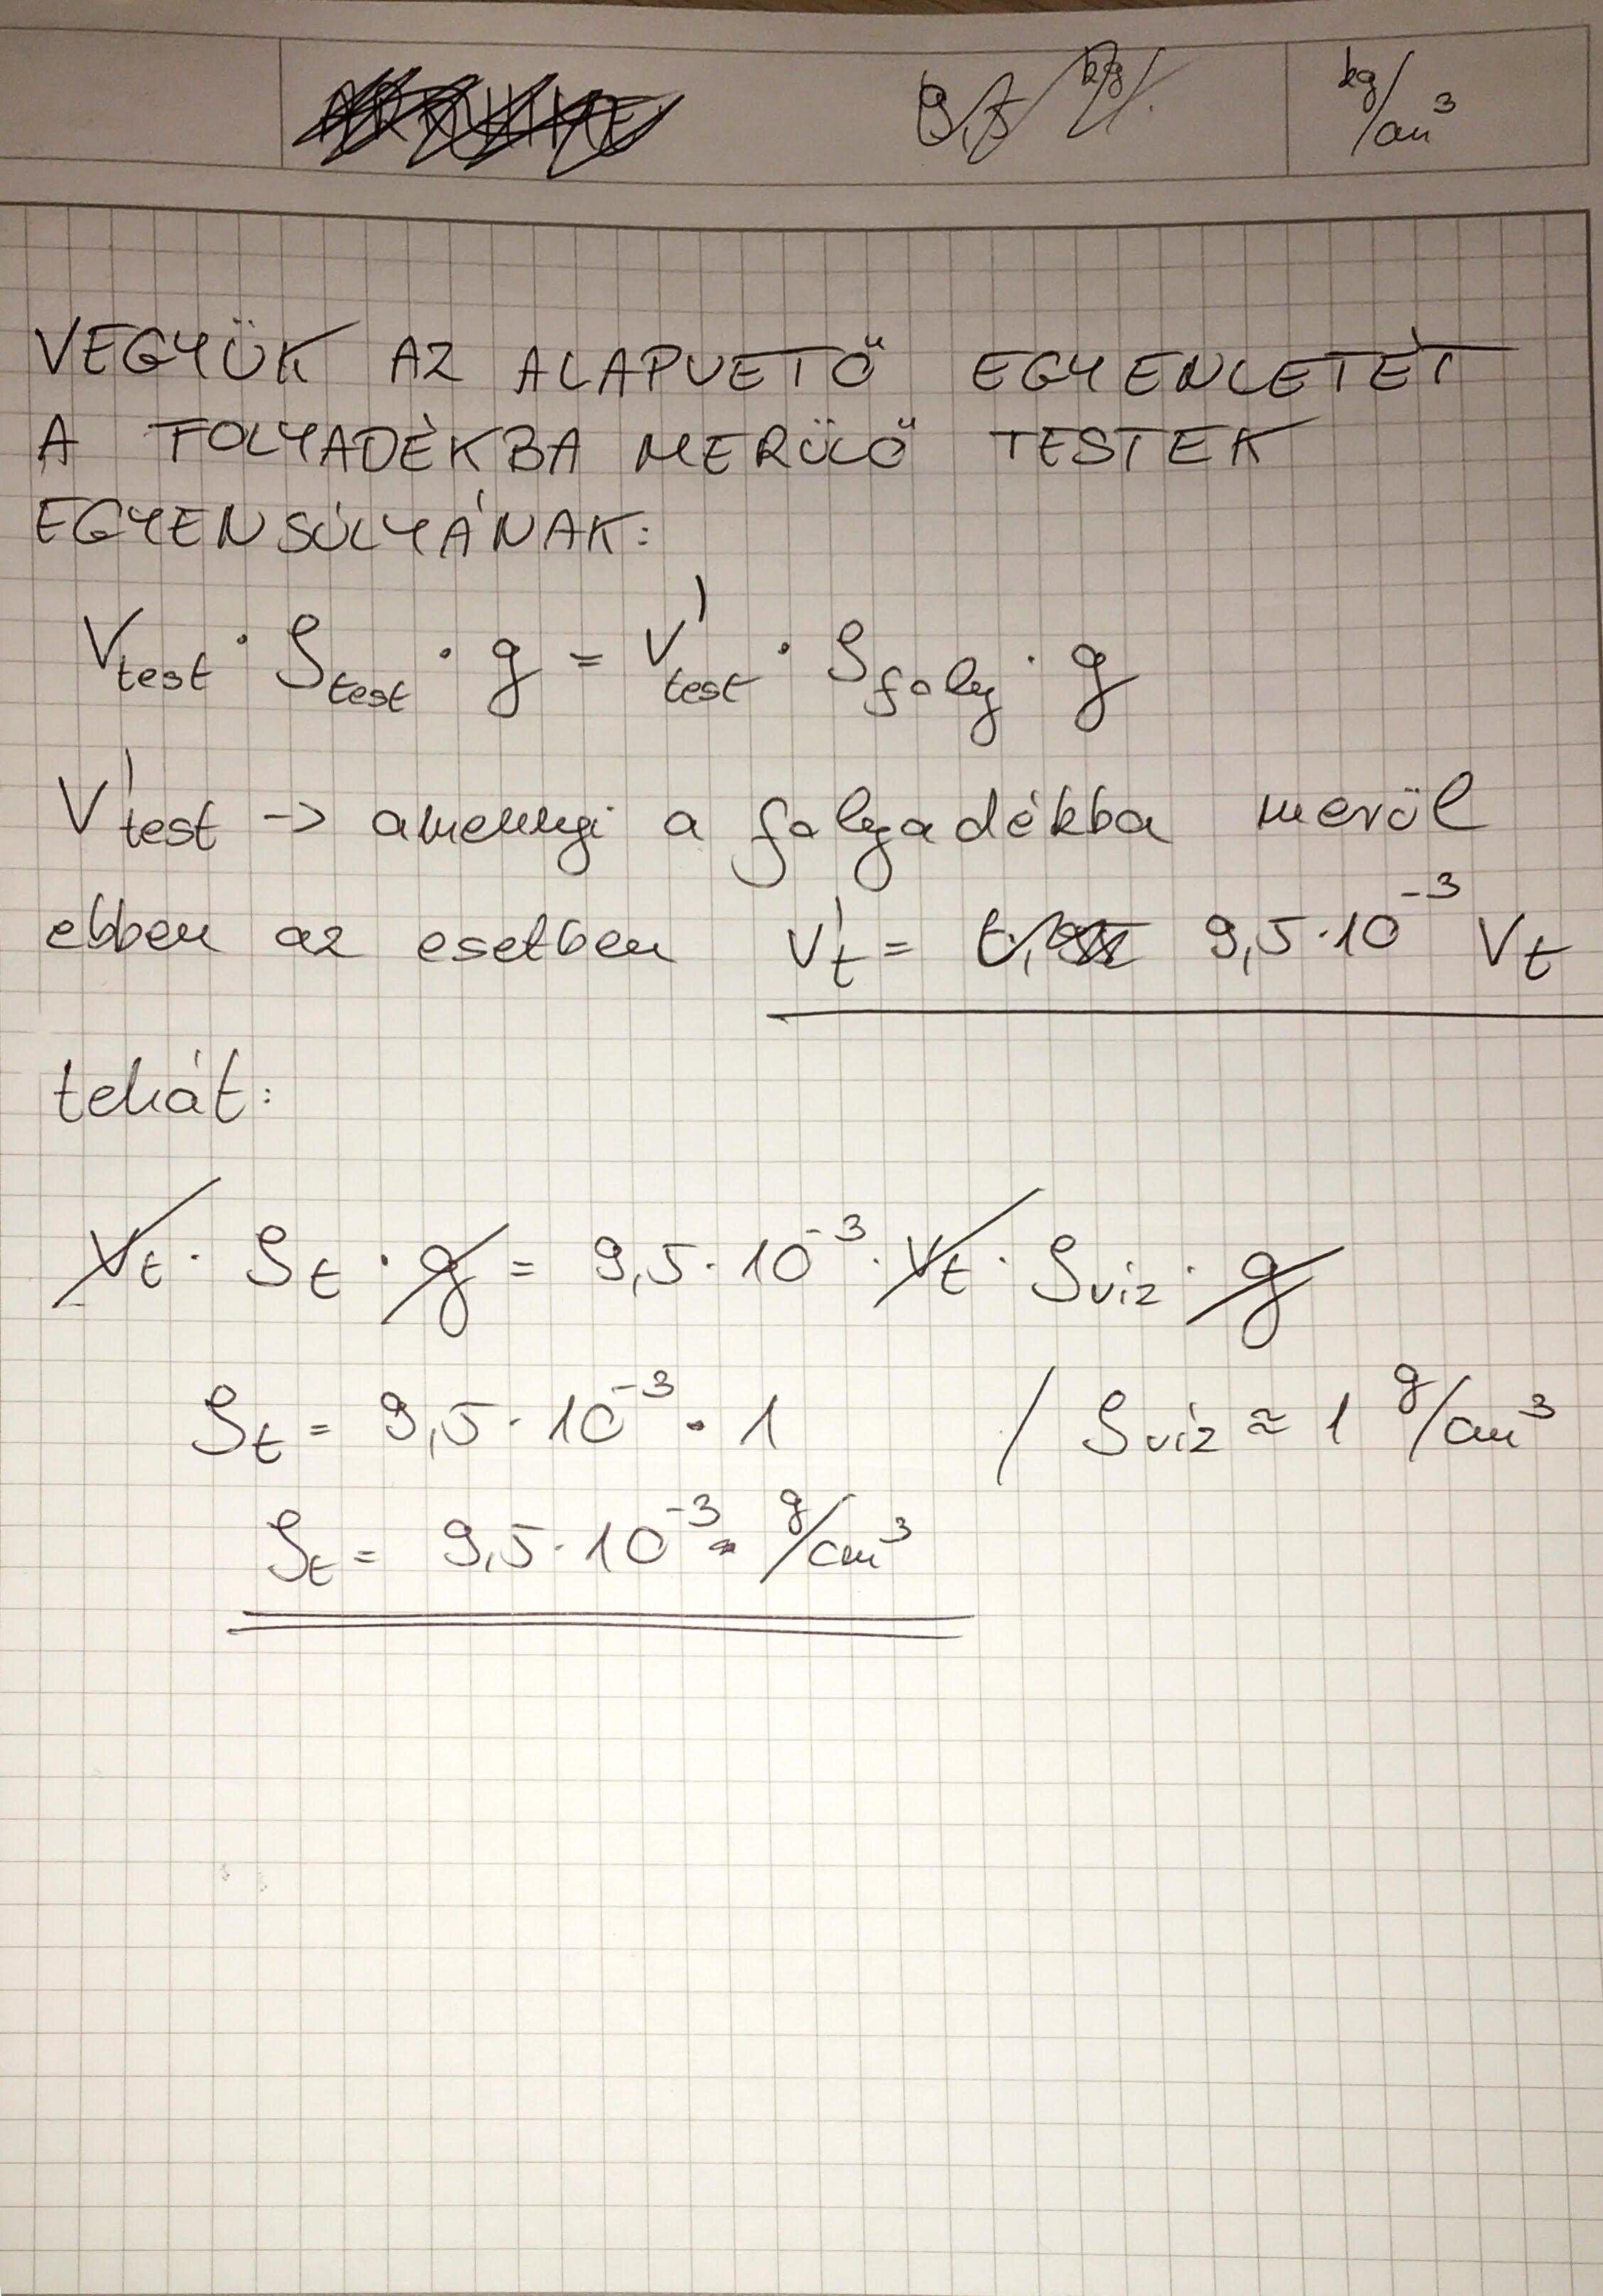 9,5 kg/ kg/cm³
VEGYÜK AZ ALAPVETŐ EGYENLETÉT
A FOLYADÉKBA MERÜLŐ TESTEK
EGYENSÚLYÁNAK:
V_test · ρ_test · g = V'_test · ρ_foly · g
V'_test -> amennyi a folyadékba merül
ebben az esetben V'_t = 9,5·10⁻³ V_t
tehát:
V_t · ρ_t · g = 9,5·10⁻³ · V_t · ρ_víz · g
ρ_t = 9,5·10⁻³ · 1 / ρ_víz ≈ 1 g/cm³
ρ_t = 9,5·10⁻³ g/cm³